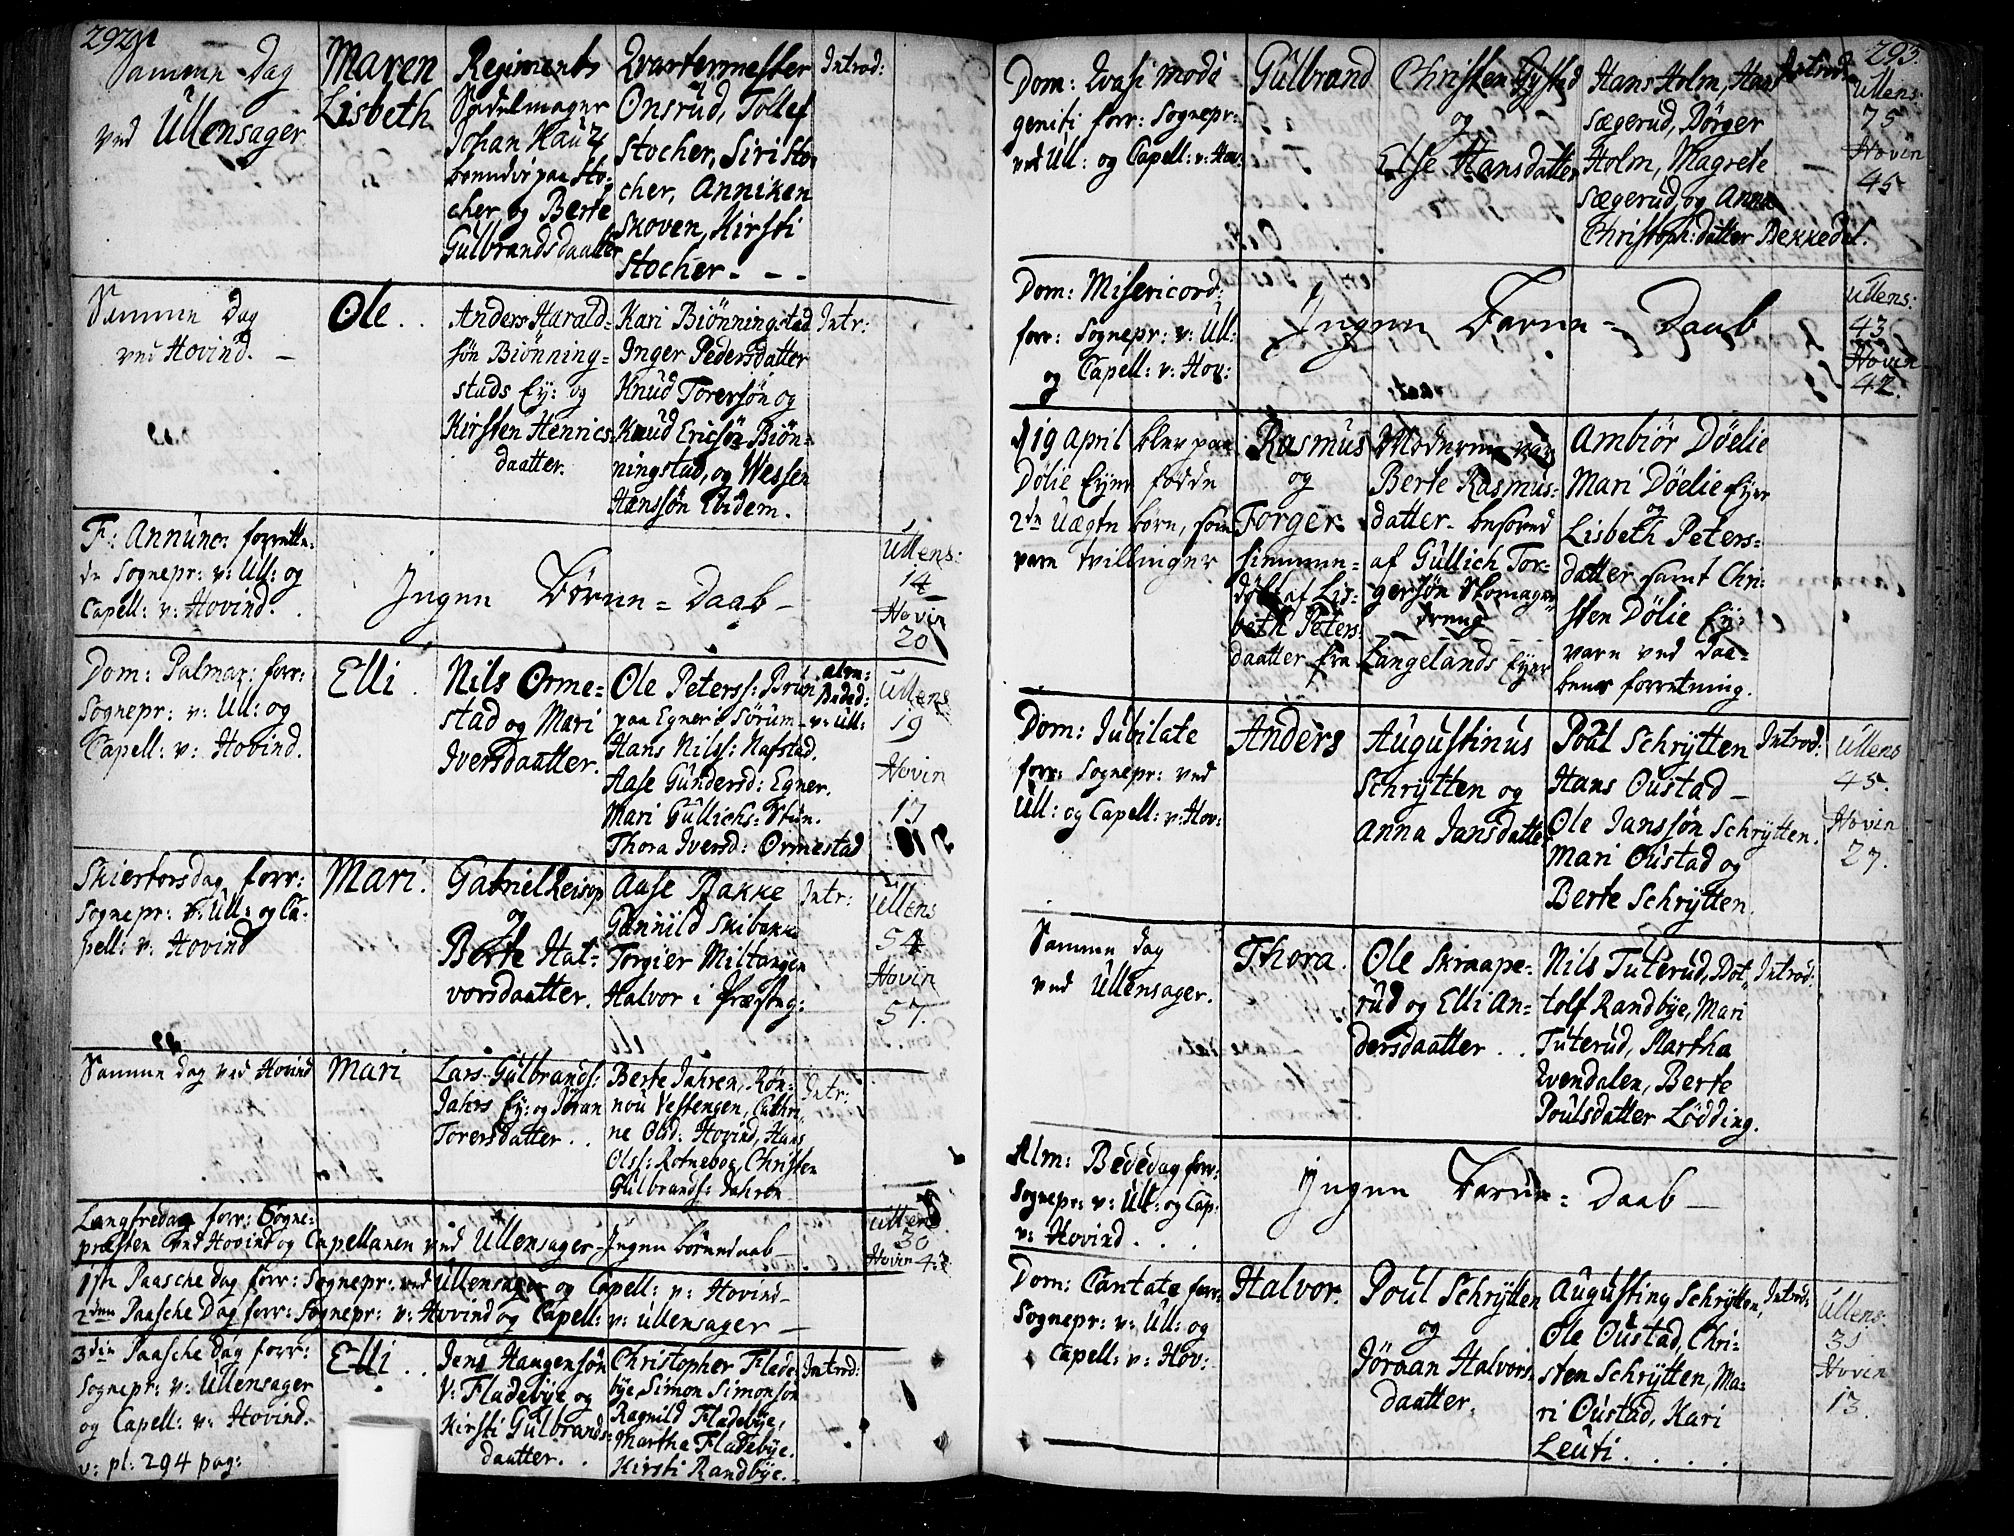 292
Samme Dag
ved Ullensager
Maren
Lisbeth
Regiments
Sadelmager
Johan Hautz
boende paa Sto-
cher, og Berte
Gulbrandsdaatter
Qvartermester
Onsrud, Tollef
Stocher, Siri Sto-
cher, Anniken
Skoven, Kirsti
Stocher - - -
Introd:
Samme Dag
ved Hovind. -
Ole . .
Anders Harald-
søn Biønning=
stads Ey: og
Kirsten Henrics
daatter.
Kari Biønningstad
Inger Pedersdatter
Knud Torersøn og
Knud Ericsøn Biøn-
ningstad, og Wessen
Hanssøn Ibidem.
Intr:
F: Annunc: forrette-
de Sognepr: v: Ull: og
Capell: v: Hovind. .
Ingen Børne=Daab -
Ullens:
14
Hovin
20
Dom: Palmar: forr:
Sognepr: v: Ull: og
Capell: v: Hovind.
Elli .
Nils Orme=
stad og Mari
Iversdaatter.
Ole Peterss: Brun
paa Egner i Sørum-
Hans Nilss: Nafstad.
Aase Gundersd: Egner.
Mari Gullichs: Stun.
Thora Iversd: Ormestad
v: Ull:
Ullens
19
Hovin
17
Skiertorsdag forr:
Sognepr: v: Ull: og Ca-
pell: v: Hovind
Mari.
Gabriel Leisop
og
Berte Hal-
vorsdaatter.
Aase Bakke
Gunnild Skibakke
Torgier Miltangen
Halvor i Præsteg:
Intr:
Ullens
54
Hovin
57.
Samme dag ved Hovind
Mari
Lars Gulbrands:
Jahrs Ey: og Jøran
Torersdatter . .
Berte Jahren, Røn-
nou Vestengen, Cathri-
ne Olsd: Hovind, Hans
Olss: Rotnebog, Christen
Gulbrands: Jahren
Intr:
Langfredag forr: Sogne-
præsten ved Hovind og Capellanen ved Ullensager - Ingen børnedaab -
Ullens
30
Hovin 43
1ste Paasche dag forr: Sognepr: ved Ullensager og Capell: v: Hovind -
2den Paasche Dag forr: Sognepr: v: Hovind og Capell: v: Ullensager -
3die Paasche dag forr:
Sognepr: v: Ullensager
og Capell: v: Hovind.
v: pl: 294 pag:
Elli . .
Jens Haagensøn
v: Fladebye og
Kirsti Gulbrands-
daatter. .
Christopher Flade-
bye, Simon Simonsøn
Ragnild Fladebye,
Martha Fladebye.
Kirsti Randbye. -
Introd:
293.
Dom: Qvasi modo
geniti forr: Sognepr:
ved Ull: og Capell: v: Hov:
Gulbrand
Christen Gystad
og
Else Hansdatter
Hans Holm, Hans
Sægerud, Børger
Holm, Magrete
Sægerud, og Anna
Christoph: datter Bekkedal.
Introd:
Ullens:
75
Hovin
45
Dom: Misericord:
forr: Sognepr: v: Ull:
og Capell: v: Hov:
Ingen Barne=Daab
Ullens:
43
Hovin
42.
d 19 April blev paa
Dølie Eyer fødde
2de Uægte børn, som
vare tvillinger
Rasmus
og
Torger.
hiemme-
døbt af Lis-
beth Peters-
daatter fra
Moderen var
Berte Rasmus:
datter - besoved
af Gullich Tor-
gersøn Skomager
dreng
Langelands Eyer
Ambiør Døelie
Mari Døelie Eyer
og
Lisbeth Peters-
datter samt Chri-
sten Dølie Ey:
vare ved Daa-
bens forretning.
Dom: Jubilate
forr: Sognepr: ved
Ull: og Capell: v: Hov:
Anders
Augustinus
Schrytten og
Anna Jansdatter
Poul Schrytten
Hans Oustad -
Ole Janssøn Schrytten.
Mari Oustad og
Berte Schrytten.
Introd:
Ullens
45.
Hovin
27.
Samme dag
ved Ullensager.
Thora.
Ole Skraape-
rud og Elli An-
dersdaatter . .
Nils Tuterud, Bot-
tolf Randbye, Mari
Tuterud, Martha
Qvendalen, Berte
Poulsdatter Lødding.
Introd:
Alm: Bededag forr:
Sognepr: v: Ull: og Cap:
v: Hovind . . .
Ingen Barne=Daab -
Dom: Cantate forr:
Sognepr: v: Ull: og
Capell: v: Hov:
Halvor.
Poul Schrytten
og
Jøraan Halvors-
daatter.
Augusting Schrytten,
Ole Oustad, Chri-
sten Schrytten, Ma-
ri Oustad, Kari
Leuti . . . .
Introd:
Ullens:
31
Hovin
13.